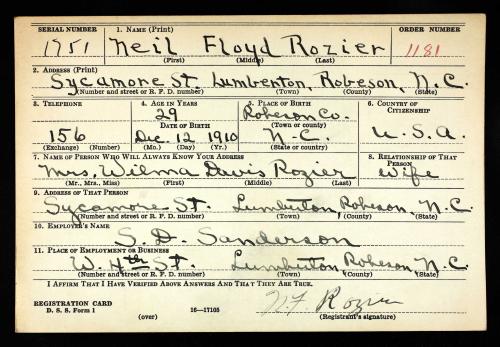 SERIAL NUMBER 1. NAME (Print) ORDER NUMBER
1951 Neil Floyd Rozier 1181
(First) (Middle) (Last)
2. ADDRESS (Print)
Sycamore St. Lumberton, Robeson, N.C.
(Number and street or R. F. D. number) (Town) (County) (State)
3. TELEPHONE 4. AGE IN YEARS 5. PLACE OF BIRTH 6. COUNTRY OF CITIZENSHIP
29 Robeson Co.
DATE OF BIRTH (Town or county)
156 Dec. 12 1910 N.C. U.S.A.
(Exchange) (Number) (Mo.) (Day) (Yr.) (State or country)
7. NAME OF PERSON WHO WILL ALWAYS KNOW YOUR ADDRESS 8. RELATIONSHIP OF THAT PERSON
Mrs. Wilma Davis Rozier Wife
(Mr., Mrs., Miss) (First) (Middle) (Last)
9. ADDRESS OF THAT PERSON
Sycamore St. Lumberton, Robeson, N.C.
(Number and street or R. F. D. number) (Town) (County) (State)
10. EMPLOYER'S NAME
S. D. Sanderson
11. PLACE OF EMPLOYMENT OR BUSINESS
W. 4th St. Lumberton Robeson N.C
(Number and street or R. F. D. number) (Town) (County) (State)
I AFFIRM THAT I HAVE VERIFIED ABOVE ANSWERS AND THAT THEY ARE TRUE.
REGISTRATION CARD
D. S. S. Form 1 (over) 16—17105 N F Rozier
(Registrant's signature)